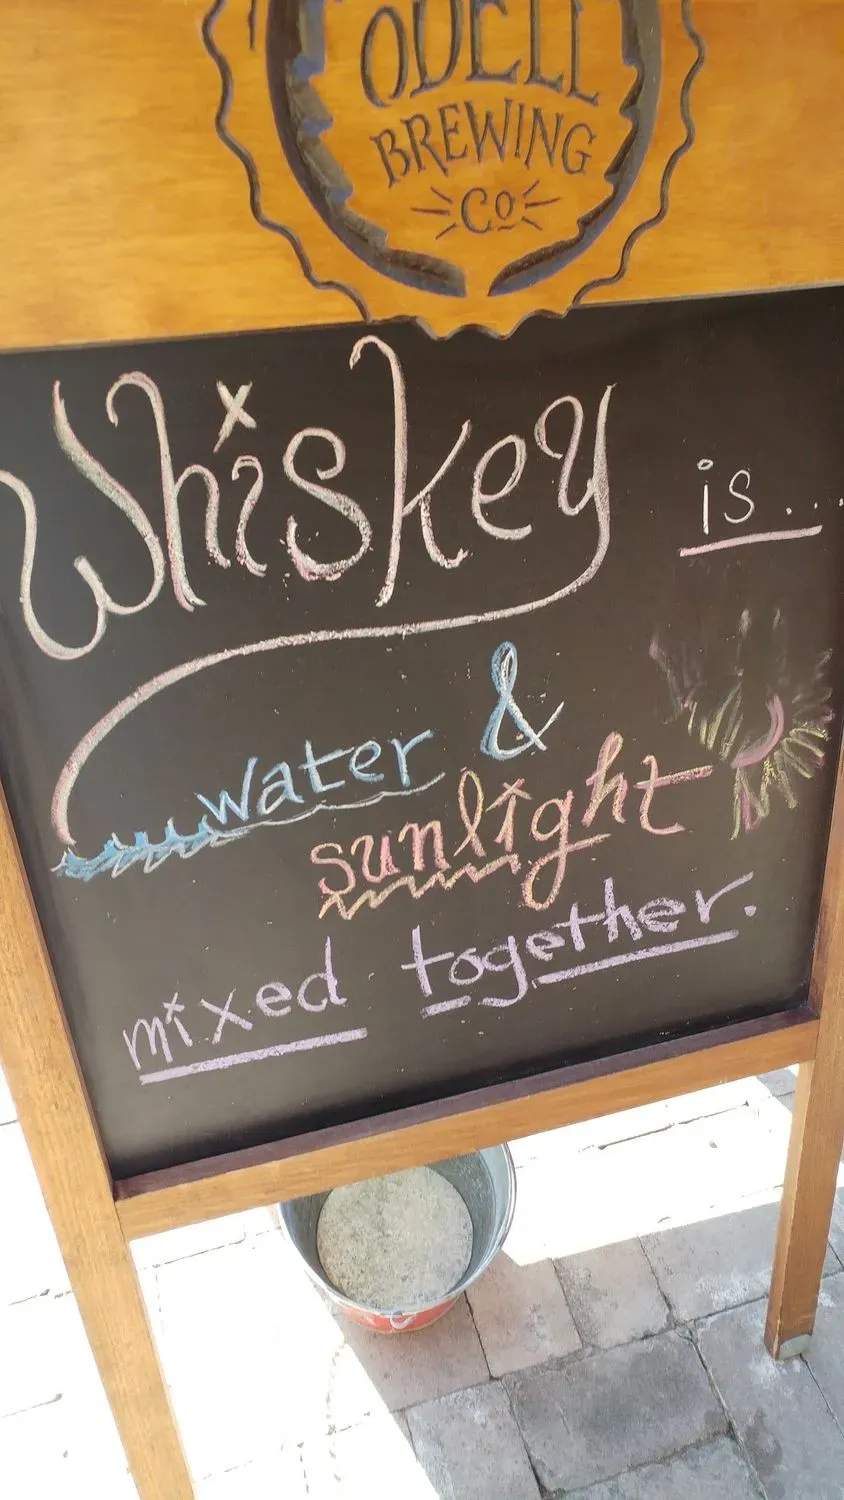 ODELL
BREWING
Co
Whiskey is...
water &
sunlight
mixed together.